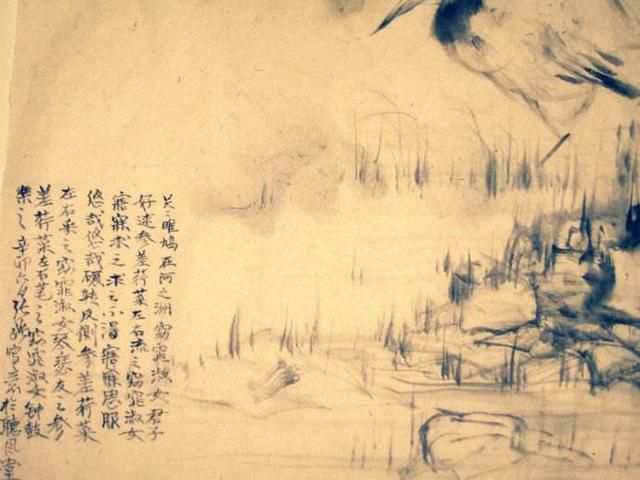 关〻雎鳩在河之洲窈窕淑女君子
好逑参差荇菜左右流之窈窕淑女
寤寐求之求之不得寤寐思服
悠哉悠哉碾转反侧参差荇菜
左右采之窈窕淑女琴瑟友之参
差荇菜左右芼之窈窕淑女钟鼓
樂之辛卯六夕张写意於聽風堂